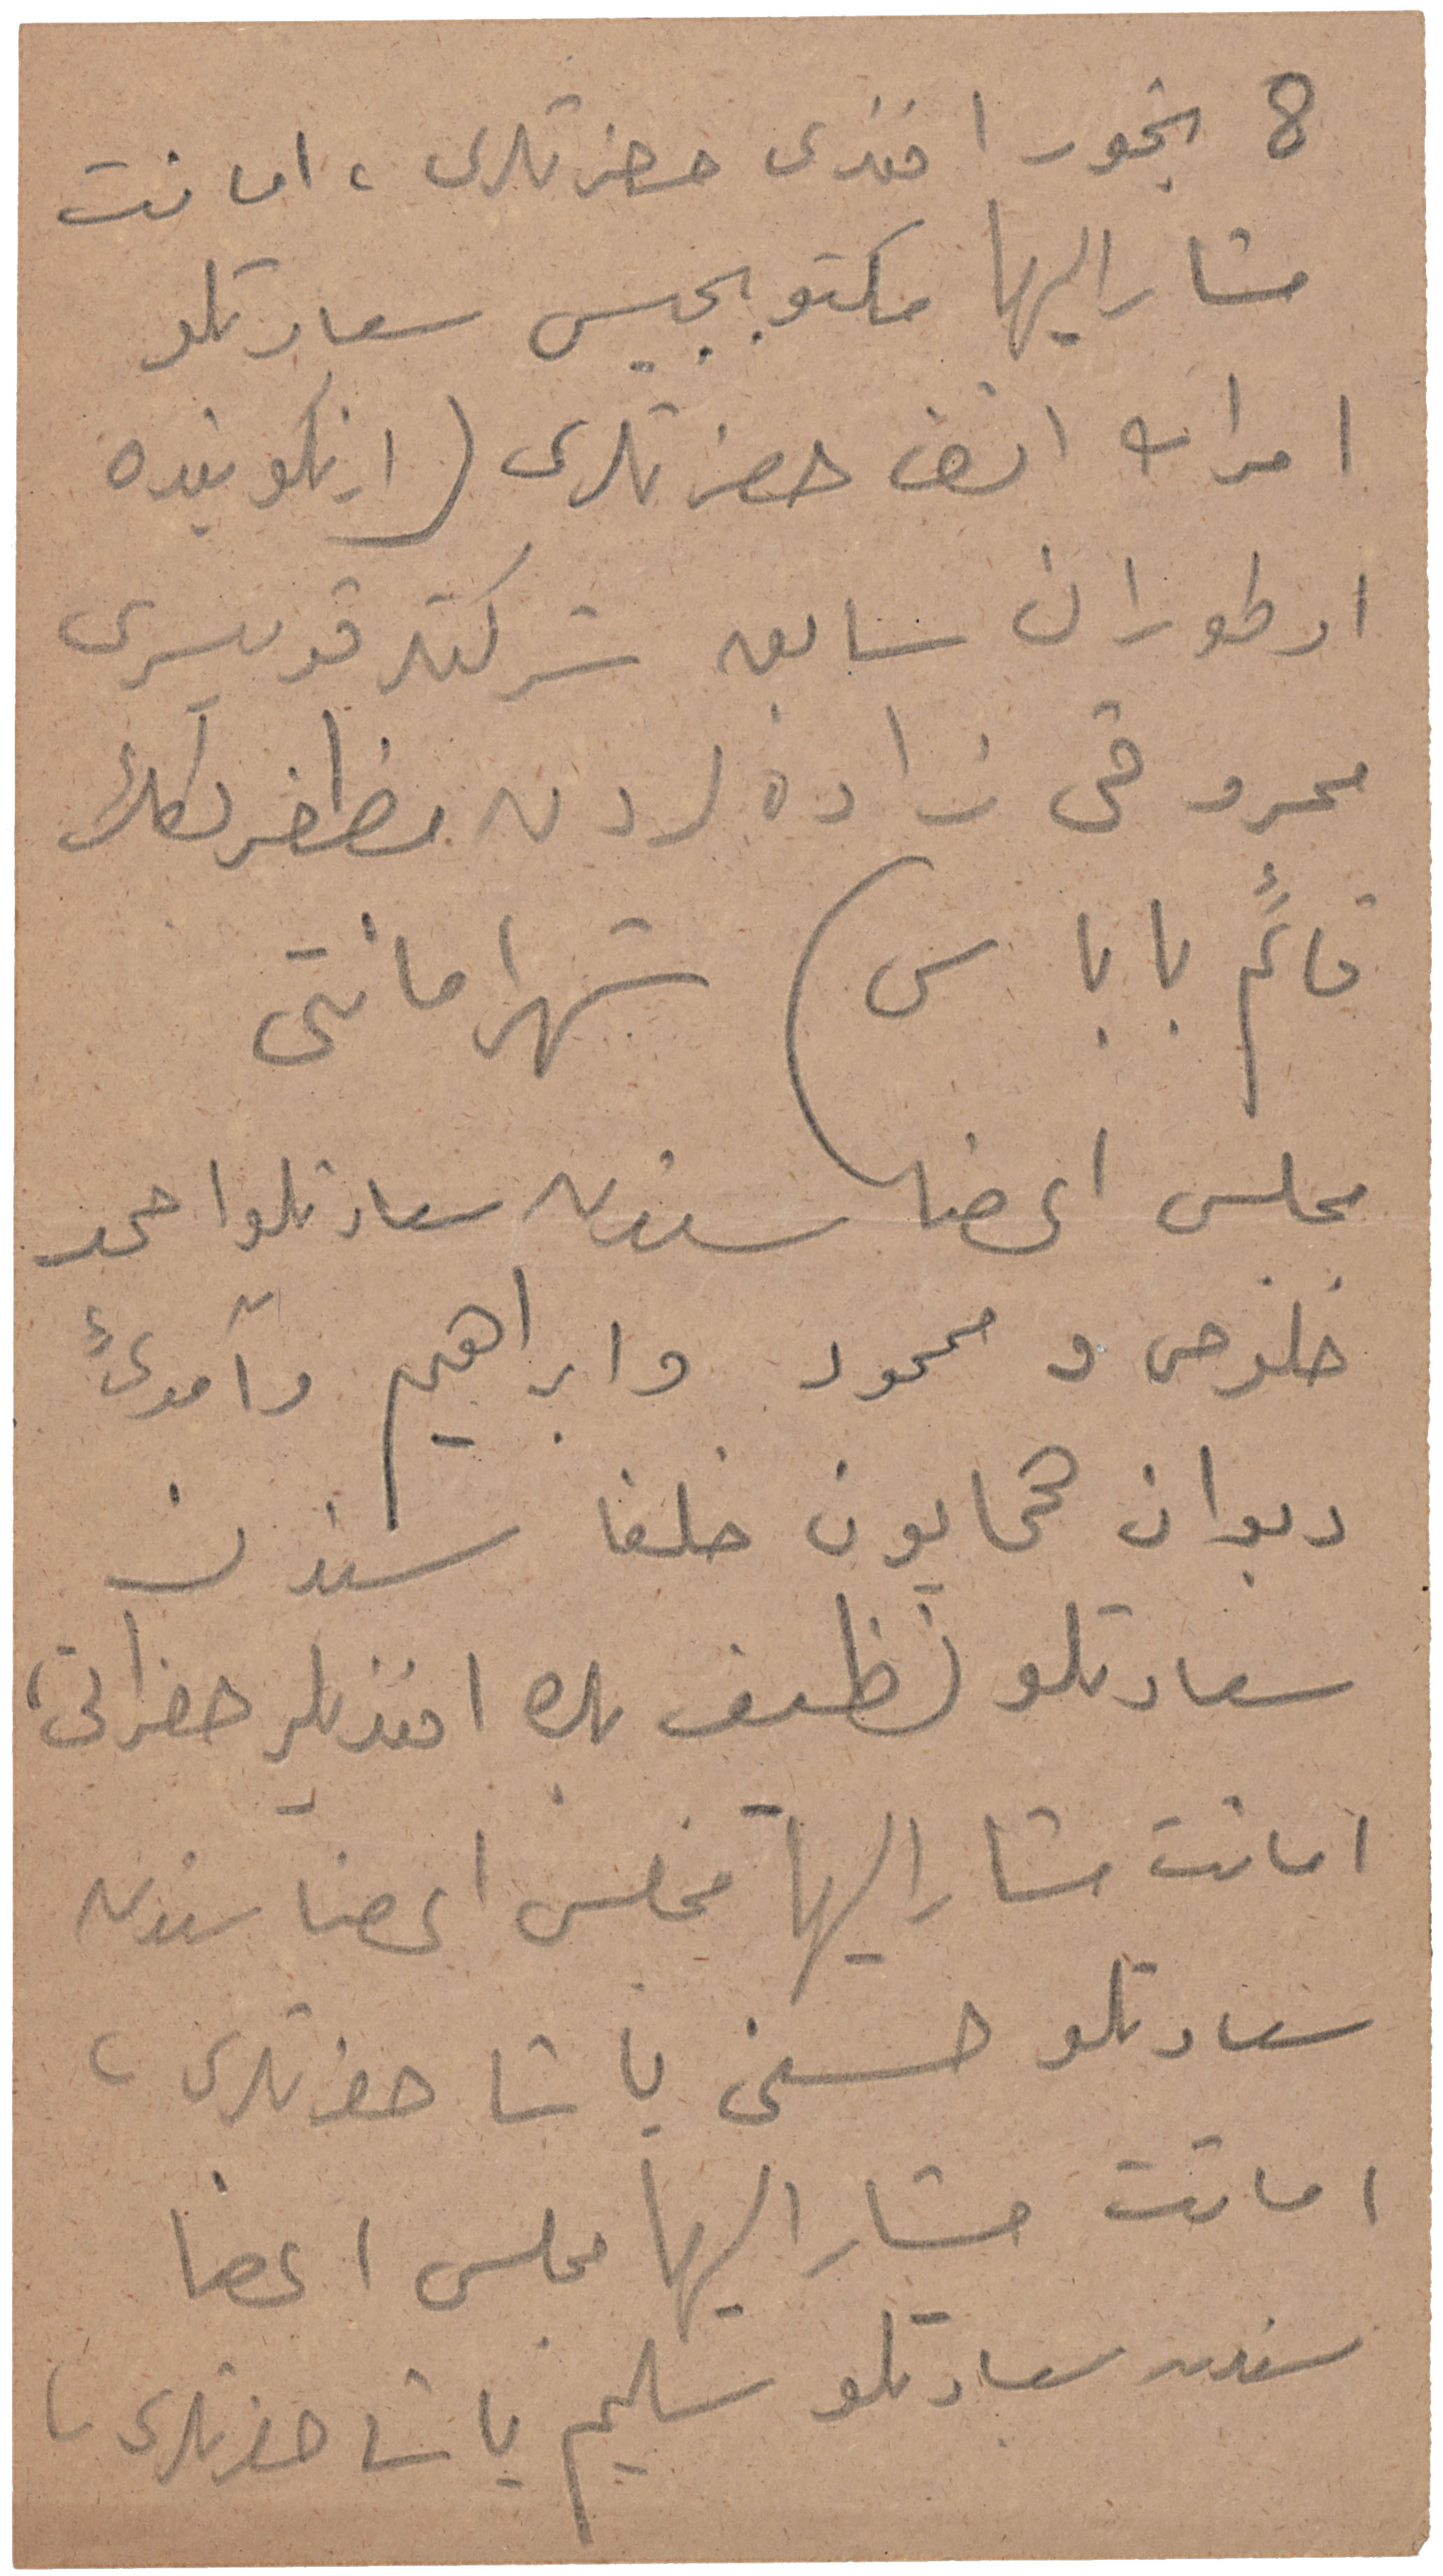 8 بخور افندی حضرتلری ، امانت
مشار الیها مکتوبجیسی سعادتلو
امر الله افندی حضرتلری (
اوطوران سابق شرکت قومیسری
محروقی زاده لردن مظفر بكك
قائم باباسی) شهر امانتی
مجلس اعضاسندن سعادتلو احمد
خلوصی و محمود و ابراهیم و آمدیٔ
دیوان همایون خلفاسندن
سعادتلو نظیف بك افندیلر حضراتی ،
امانت مشار الیها مجلس اعضاسندن
سعادتلو حسنی پاشا حضرتلری ،
امانت مشار الیها مجلس اعضا
سندن سعادتلو سلیم پاشا حضرتلری ،